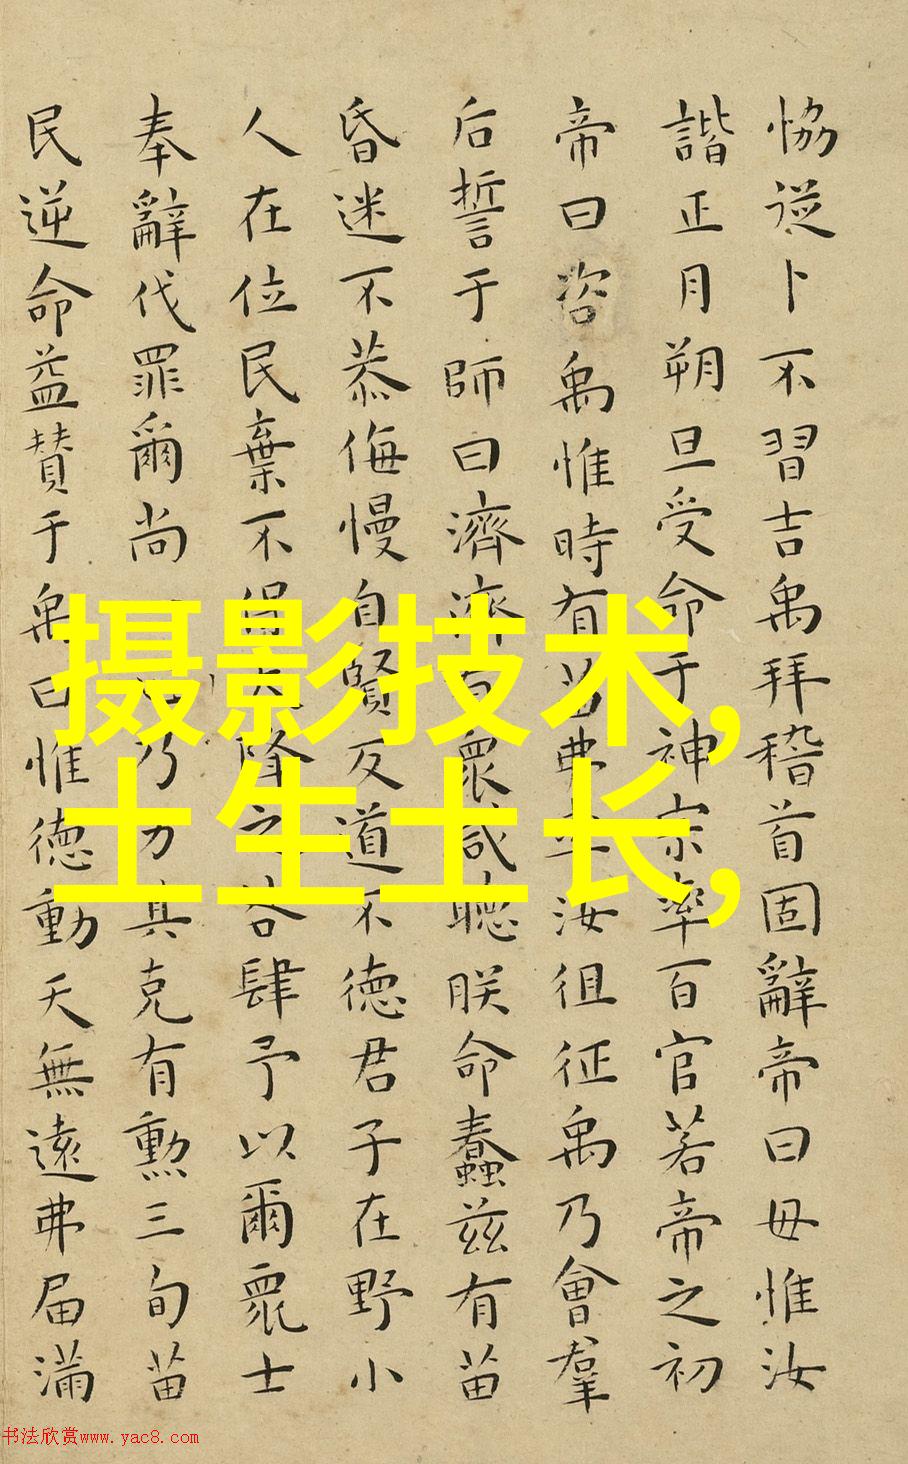 恊從卜不習吉禹拜稽首固辭帝曰毋惟汝
諧正月朔旦受命于神宗率百官若帝之初
帝曰咨禹惟時有苗弗率汝徂征禹乃會羣
后誓于師曰濟濟有衆咸聽朕命蠢茲有苗
昏迷不恭侮慢自賢反道不德君子在野小
人在位民棄不保天降之咎肆予以爾衆士
奉辭伐罪爾尚一乃力其克有勳三旬苗
民逆命益贊于禹曰惟德動天無遠弗届滿
摄影技术,
土生土长,
书法欣赏www.yac8.com